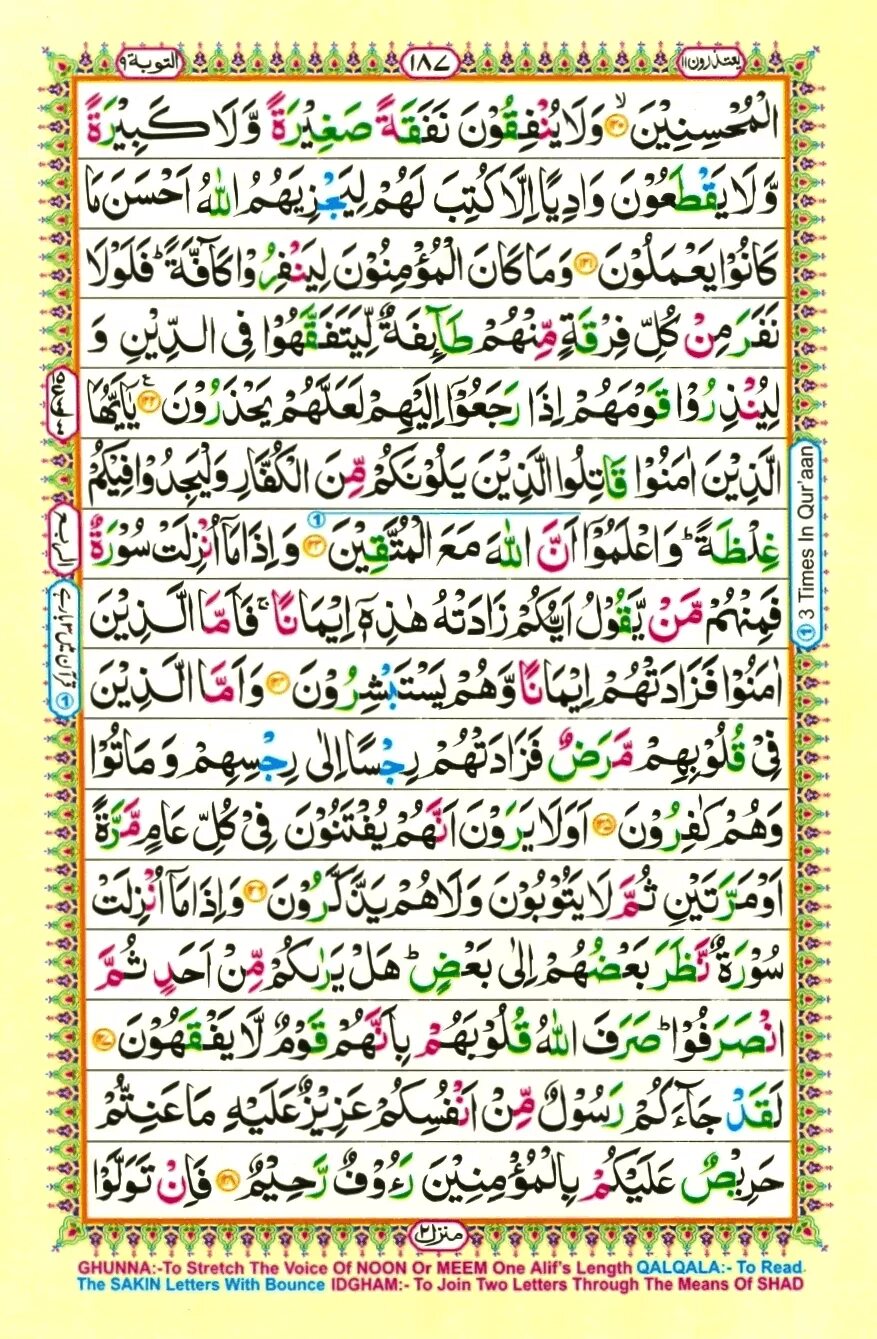 التوبة ٩
١٨٧
يعتذرون ١١
الْمُحْسِنِيْنَ ۙ﴿۱۲۰﴾ وَلَا يُنْفِقُوْنَ نَفَقَةً صَغِيْرَةً وَّلَا كَبِيْرَةً
وَّلَا يَقْطَعُوْنَ وَادِيًا اِلَّا كُتِبَ لَهُمْ لِيَجْزِيَهُمُ اللّٰهُ اَحْسَنَ مَا
كَانُوْا يَعْمَلُوْنَ ﴿۱۲۱﴾ وَمَا كَانَ الْمُؤْمِنُوْنَ لِيَنْفِرُوْا كَآفَّةً ؕ فَلَوْلَا
نَفَرَ مِنْ كُلِّ فِرْقَةٍ مِّنْهُمْ طَآئِفَةٌ لِّيَتَفَقَّهُوْا فِى الدِّيْنِ وَ
لِيُنْذِرُوْا قَوْمَهُمْ اِذَا رَجَعُوْۤا اِلَيْهِمْ لَعَلَّهُمْ يَحْذَرُوْنَ ﴿۱۲۲﴾ يٰۤاَيُّهَا
الَّذِيْنَ اٰمَنُوْا قَاتِلُوا الَّذِيْنَ يَلُوْنَكُمْ مِّنَ الْكُفَّارِ وَلْيَجِدُوْا فِيْكُمْ
غِلْظَةً ؕ وَاعْلَمُوْۤا اَنَّ اللّٰهَ مَعَ الْمُتَّقِيْنَ ﴿۱۲۳﴾ وَاِذَا مَاۤ اُنْزِلَتْ سُوْرَةٌ
فَمِنْهُمْ مَّنْ يَّقُوْلُ اَيُّكُمْ زَادَتْهُ هٰذِهٖۤ اِيْمَانًا ۚ فَاَمَّا الَّذِيْنَ
اٰمَنُوْا فَزَادَتْهُمْ اِيْمَانًا وَّهُمْ يَسْتَبْشِرُوْنَ ﴿۱۲۴﴾ وَاَمَّا الَّذِيْنَ
فِىْ قُلُوْبِهِمْ مَّرَضٌ فَزَادَتْهُمْ رِجْسًا اِلٰى رِجْسِهِمْ وَمَاتُوْا
وَهُمْ كٰفِرُوْنَ ﴿۱۲۵﴾ اَوَلَا يَرَوْنَ اَنَّهُمْ يُفْتَنُوْنَ فِىْ كُلِّ عَامٍ مَّرَّةً
اَوْ مَرَّتَيْنِ ثُمَّ لَا يَتُوْبُوْنَ وَلَا هُمْ يَذَّكَّرُوْنَ ﴿۱۲۶﴾ وَاِذَا مَاۤ اُنْزِلَتْ
سُوْرَةٌ نَّظَرَ بَعْضُهُمْ اِلٰى بَعْضٍ ؕ هَلْ يَرٰىكُمْ مِّنْ اَحَدٍ ثُمَّ
انْصَرَفُوْا ؕ صَرَفَ اللّٰهُ قُلُوْبَهُمْ بِاَنَّهُمْ قَوْمٌ لَّا يَفْقَهُوْنَ ﴿۱۲۷﴾
لَقَدْ جَآءَكُمْ رَسُوْلٌ مِّنْ اَنْفُسِكُمْ عَزِيْزٌ عَلَيْهِ مَا عَنِتُّمْ
حَرِيْصٌ عَلَيْكُمْ بِالْمُؤْمِنِيْنَ رَءُوْفٌ رَّحِيْمٌ ﴿۱۲۸﴾ فَاِنْ تَوَلَّوْا
الربع
① 3 Times In Qur'aan
منزل ٢
GHUNNA:-To Stretch The Voice Of NOON Or MEEM One Alif's Length QALQALA:- To Read
The SAKIN Letters With Bounce IDGHAM:- To Join Two Letters Through The Means Of SHAD